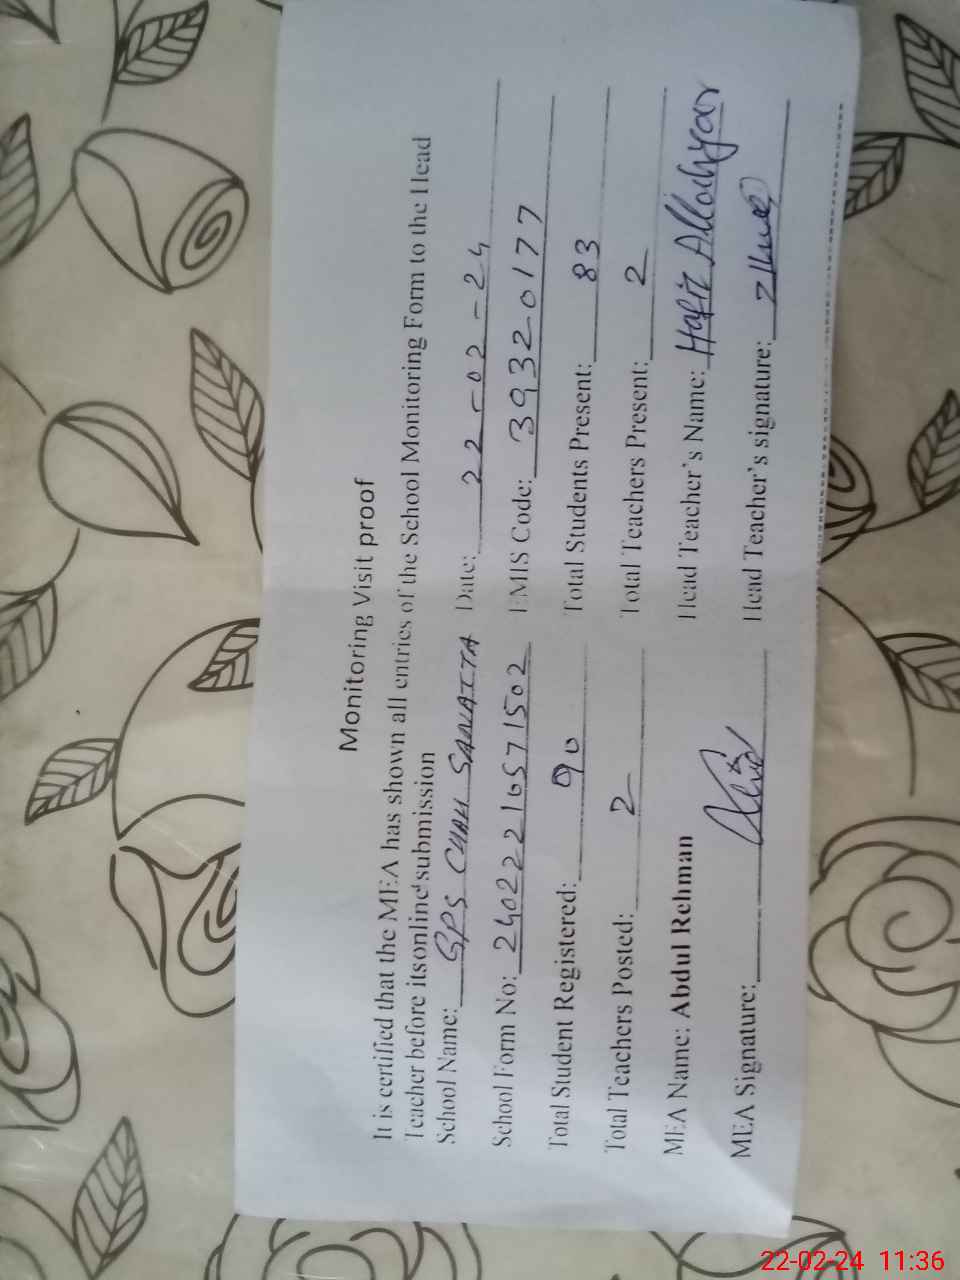 Monitoring Visit proof
It is certified that the MEA has shown all entries of the School Monitoring Form to the Head
Teacher before its online submission
School Name: GPS CHAH SANAITA Date: 22-02-24
School Form No: 24022216571502 EMIS Code: 39320177
Total Student Registered: 90 Total Students Present: 83
Total Teachers Posted: 2 Total Teachers Present: 2
MEA Name: Abdul Rehman Head Teacher's Name: Hafiz Allahyar
MEA Signature: Head Teacher's signature:
22-02-24 11:36